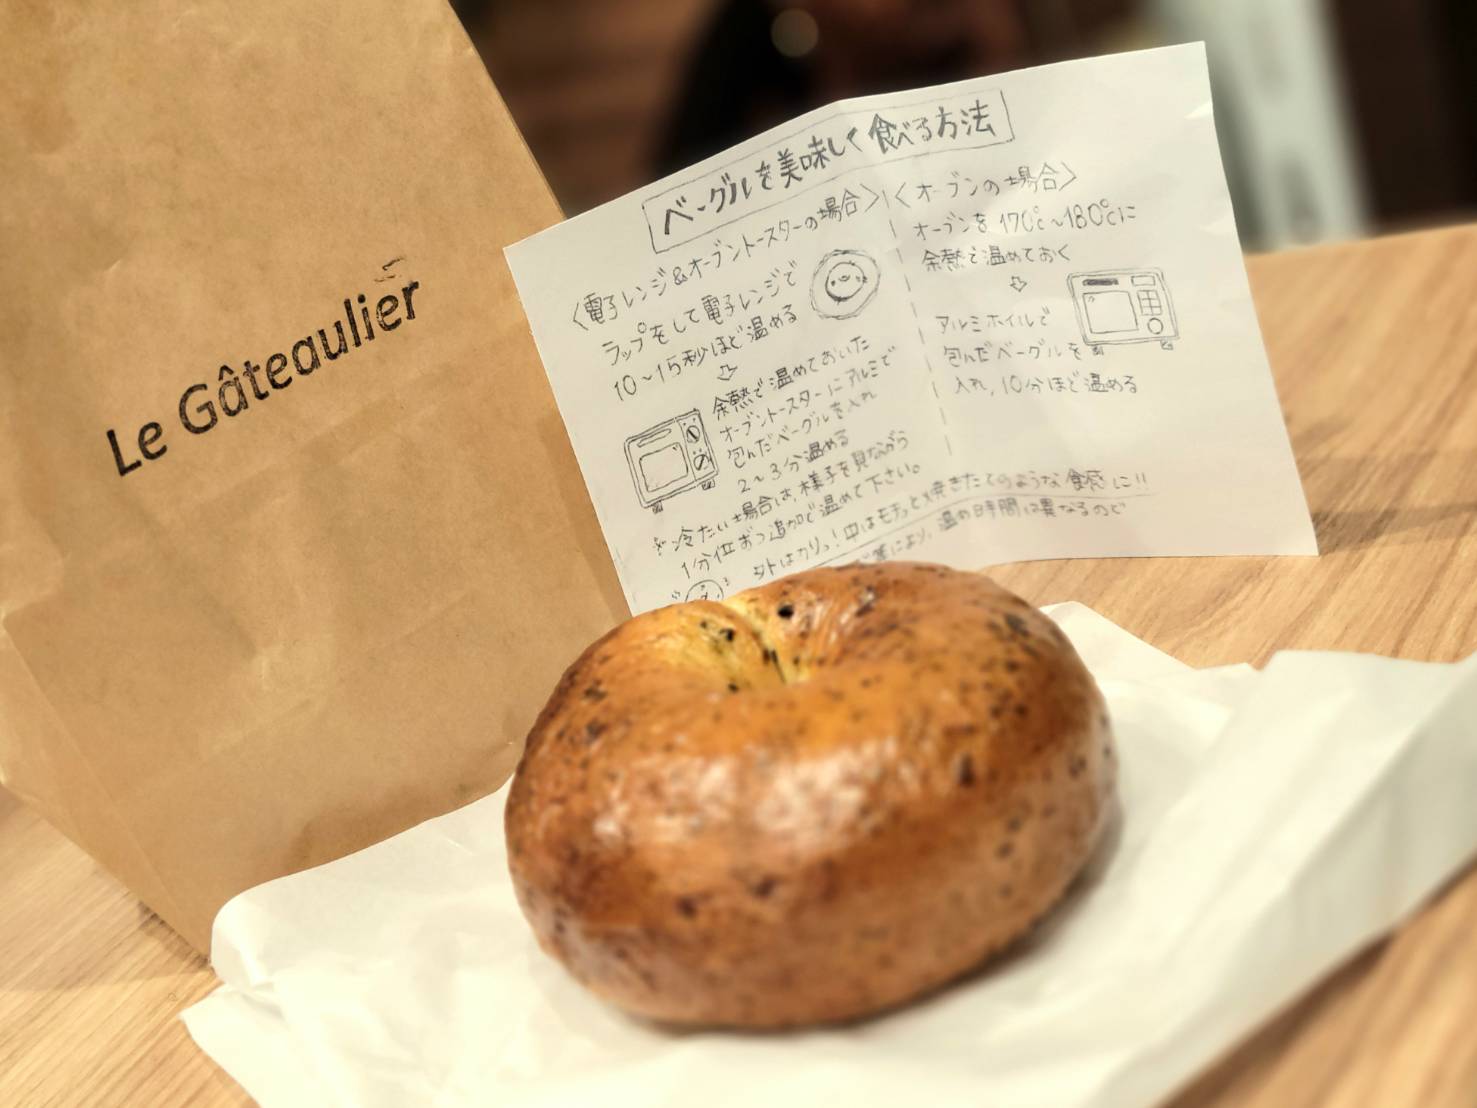 Le Gâteaulier
ベーグルを美味しく食べる方法
〈電子レンジ&オーブントースターの場合〉
ラップをして電子レンジで
10〜15秒ほど温める
⇩
余熱で温めておいた
オーブントースターにアルミで
包んだベーグルを入れ
2〜3分温める
※冷たい場合は、様子を見ながら
1分位ずつ追加で温めて下さい。
〈オーブンの場合〉
オーブンを170℃〜180℃に
余熱で温めておく
⇩
アルミホイルで
包んだベーグルを
入れ、10分ほど温める
外はカリッ!中はモチっと焼きたてのような食感に!!
により、温め時間は異なるので